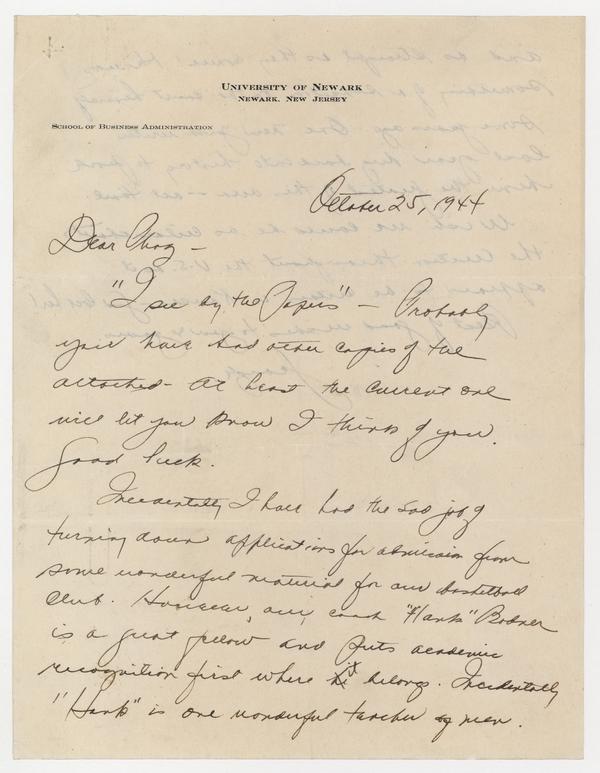 UNIVERSITY OF NEWARK
NEWARK, NEW JERSEY
SCHOOL OF BUSINESS ADMINISTRATION
October 25, 1944
Dear
"I see by the Papers" – Probably
you have had other copies of the
attached – At least the current one
will let you know I think of you.
Good luck.
Incidentally I have had the sad job of
turning down applications for admission from
some wonderful material for our basketball
club. However, our coach "Hank" Bodner
is a great fellow and puts academic
recognition first where it belongs. Incidentally
"Hank" is one wonderful teacher of men.